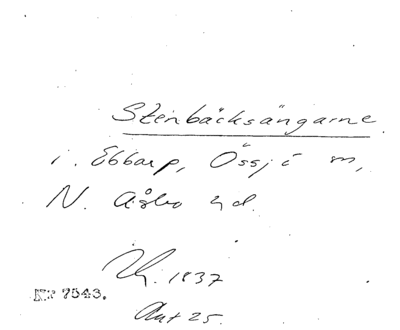 Stenbäcksängarne
i Ebbarp, Össjö sn,
N. Åsbo hd.
1837
Akt 25.
7543.